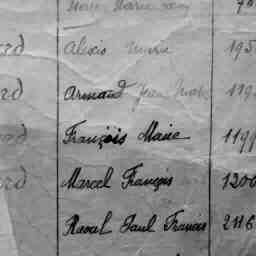 Marie
rd Alexis Marie 195
rd Armand Jean 119
rd François Marie 1199
rd Marcel François 1200
Raoul Paul François 2116